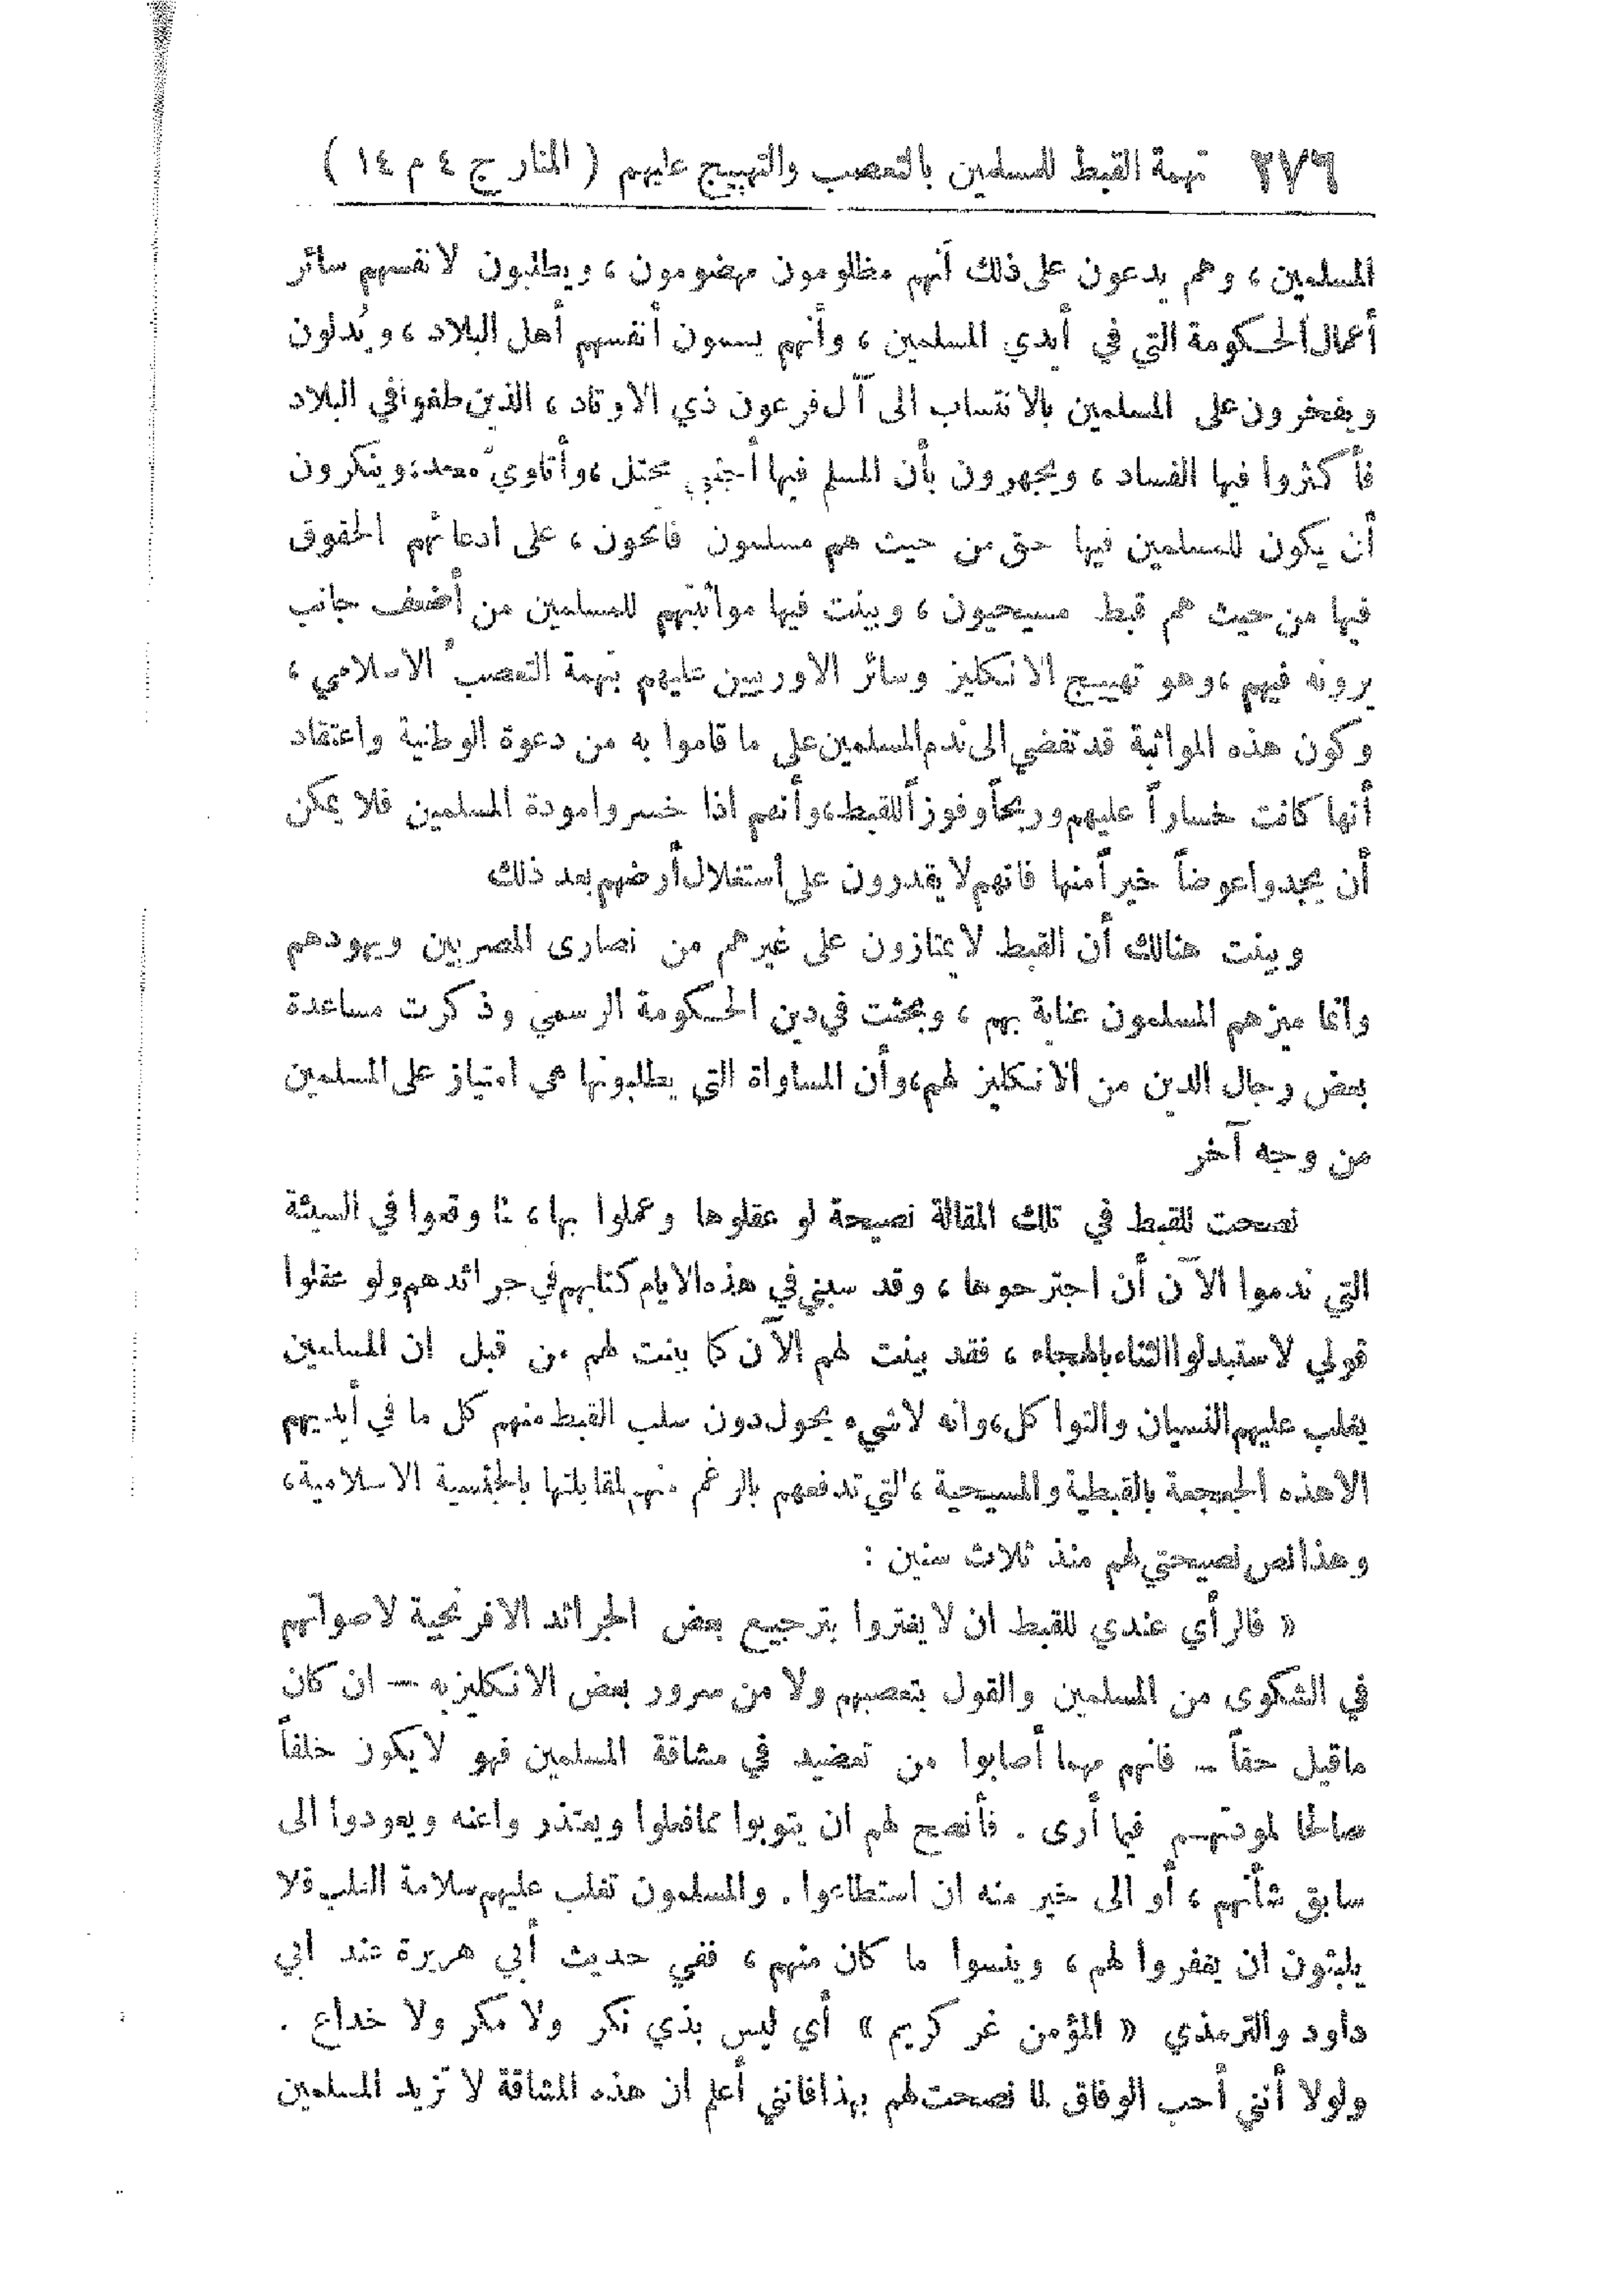 ٢٧٦ تهمة القبط للمسلمين بالتعصب والتهييج عليهم ( المنار ج ٤ م ١٤ )
المسلمين ، وهم يدعون على ذلك أنهم مظلومون مهضومون ، ويطلبون لانفسهم سائر
أعمال الحكومة التي في أيدي المسلمين ، وأنهم يسمون أنفسهم أهل البلاد ، ويُدلون
ويفخرون على المسلمين بالانتساب الى آل فرعون ذي الاوتاد ، الذين طغوا في البلاد
فأكثروا فيها الفساد ، ويجهرون بأن المسلم فيها أجنبي محتل ، وأتاويّ معتد ، وينكرون
أن يكون للمسلمين فيها حق من حيث هم مسلمون فاتحون ، على ادعائهم الحقوق
فيها من حيث هم قبط مسيحيون ، وبينت فيها مواثبتهم للمسلمين من أضعف جانب
يرونه فيهم ، وهو تهييج الانكليز وسائر الاوربيين عليهم بتهمة التعصب الاسلامي ،
وكون هذه المواثبة قد تفضي الى ندم المسلمين على ما قاموا به من دعوة الوطنية واعتقاد
أنها كانت خساراً عليهم وربحاً وفوزاً للقبط ، وأنهم اذا خسروا مودة المسلمين فلا يمكن
أن يجدوا عوضاً خيراً منها فانهم لا يقدرون على استغلال أرضهم بعد ذلك
وبينت هنالك أن القبط لا يمتازون على غيرهم من نصارى المصريين ويهودهم
وانما ميزهم المسلمون عناية بهم ، وبحثت في دين الحكومة الرسمي وذكرت مساعدة
بعض رجال الدين من الانكليز لهم ، وأن المساواة التي يطلبونها هي امتياز على المسلمين
من وجه آخر
نصحت للقبط في تلك المقالة نصيحة لو عقلوها وعملوا بها ، لما وقعوا في السيئة
التي ندموا الآن أن اجترحوها ، وقد سبني في هذه الايام كتابهم في جرائدهم ولو عقلوا
قولي لاستبدلوا الثناء بالهجاء ، فقد بينت لهم الآن كما بينت لهم من قبل ان المسلمين
يغلب عليهم النسيان والتواكل ، وانه لا شيء يحول دون سلب القبط منهم كل ما في أيديهم
الا هذه الجعجعة بالقبطية والمسيحية ، التي تدفعهم بالرغم منهم لمقابلتها بالجنسية الاسلامية ،
وهذا نص نصيحتي لهم منذ ثلاث سنين :
« فالرأي عندي للقبط ان لا يغتروا بترجيع بعض الجرائد الافرنجية لاصواتهم
في الشكوى من المسلمين والقول بتعصبهم ولا من سرور بعض الانكليز به — ان كان
ماقيل حقاً — فانهم مهما أصابوا من تعضيد في مشاقة المسلمين فهو لا يكون خلفاً
صالحا لمودتهم فيما أرى . فأنصح لهم ان يتوبوا مما فعلوا ويعتذروا عنه ويعودوا الى
سابق شأنهم ، أو الى خير منه ان استطاعوا . والمسلمون تغلب عليهم سلامة القلب فلا
يلبثون ان يغفروا لهم ، وينسوا ما كان منهم ، ففي حديث أبي هريرة عند ابي
داود والترمذي « المؤمن غر كريم » أي ليس بذي نكر ولا مكر ولا خداع .
ولولا أنني أحب الوفاق لما نصحت لهم بهذا فانني أعلم ان هذه المشاقة لا تزيد المسلمين